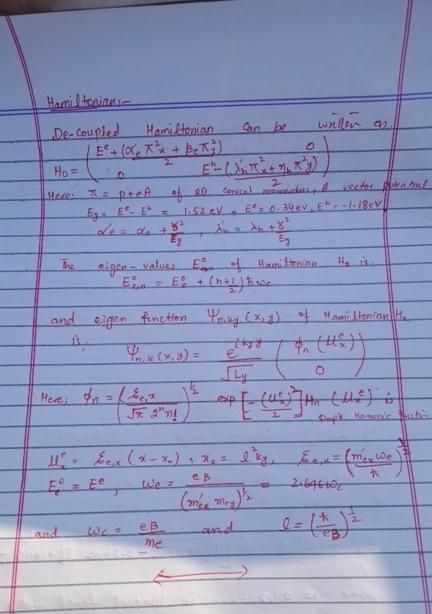 Hamiltonian:-
De-coupled Hamiltonian can be written as.
H₀ = ( Eᵉ + (α'ₑ π²x + βₑ π²y)/2    0
0    Eʰ - (λ'ₕ π²x + ηₕ π²y)/2 )
Here: π = p+eA of 2D conical momentum, A vector potential
Eg = Eᵉ - Eʰ = 1.52 eV, Eᵉ = 0.34eV, Eʰ = -1.18eV
α'ₑ = αₑ + γ²/Eg , λ'ₕ = λₕ + γ²/Eg
The eigen-values E⁰ₑ,ₙ of Hamiltonian H₀ is
E⁰ₑ,ₙ = E⁰ₑ + (n+½)ħωₑ
and eigen function Ψn,ky (x,y) of Hamiltonian H₀
is,
Ψn,k(x,y) = e^(ikyy)/√Ly ( ϕn (μᵉx)
0 )
Here; ϕn = ( ξe,x / √π 2ⁿn! )^½ exp[-(μᵉx)²/2] Hn (μᵉx) is
simple Harmonic function
μᵉx = ξe,x (x-x₀), x₀ = l²ky, ξe,x = (m'ex ωe/ħ)^½
E⁰ₑ = Eᵉ , ωe = eB/(m'ex mey)^½ = 2.696ωc
and ωc = eB/me and l = (ħ/eB)^½